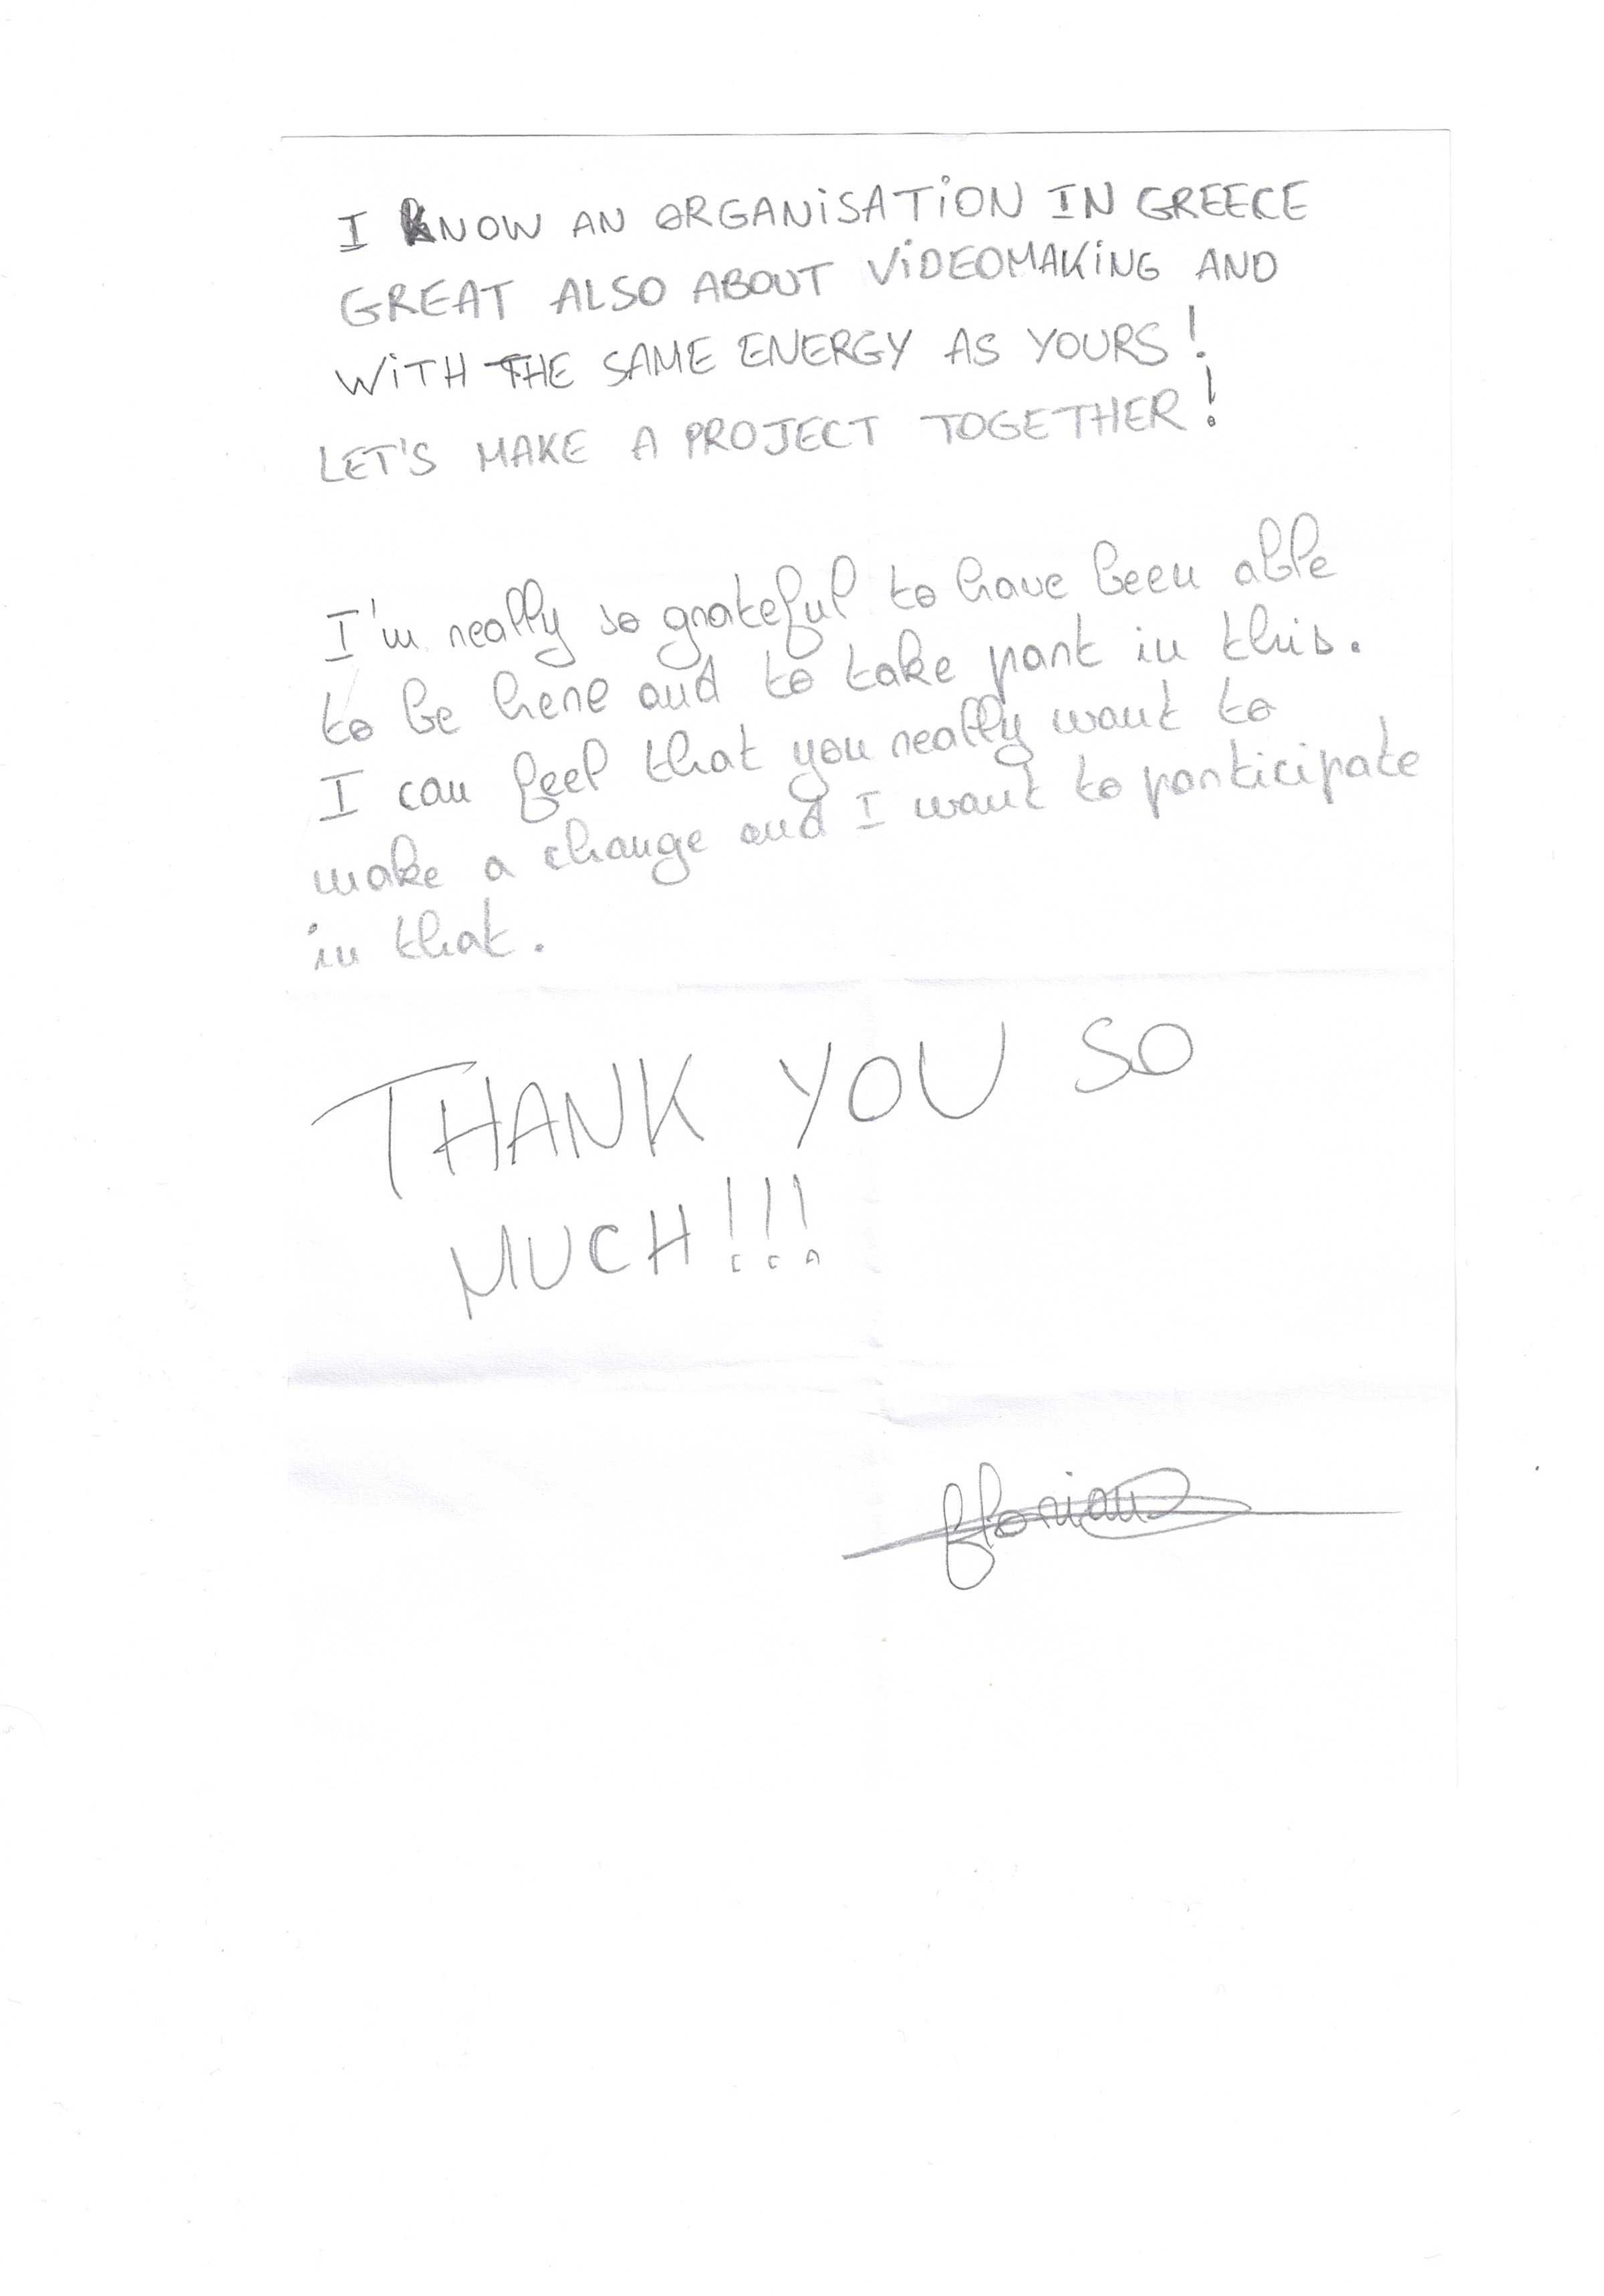 I KNOW AN ORGANISATION IN GREECE
GREAT ALSO ABOUT VIDEOMAKING AND
WITH THE SAME ENERGY AS YOURS!
LET'S MAKE A PROJECT TOGETHER!
I'm really so grateful to have been able
to be here and to take part in this.
I can feel that you really want to
make a change and I want to participate
in that.
THANK YOU SO
MUCH!!!
florian